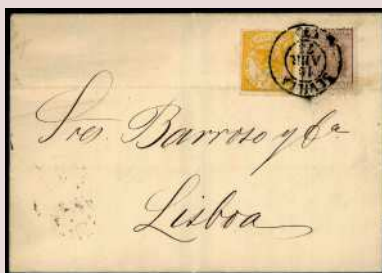 Sres. Barroso y Ca
Lisboa